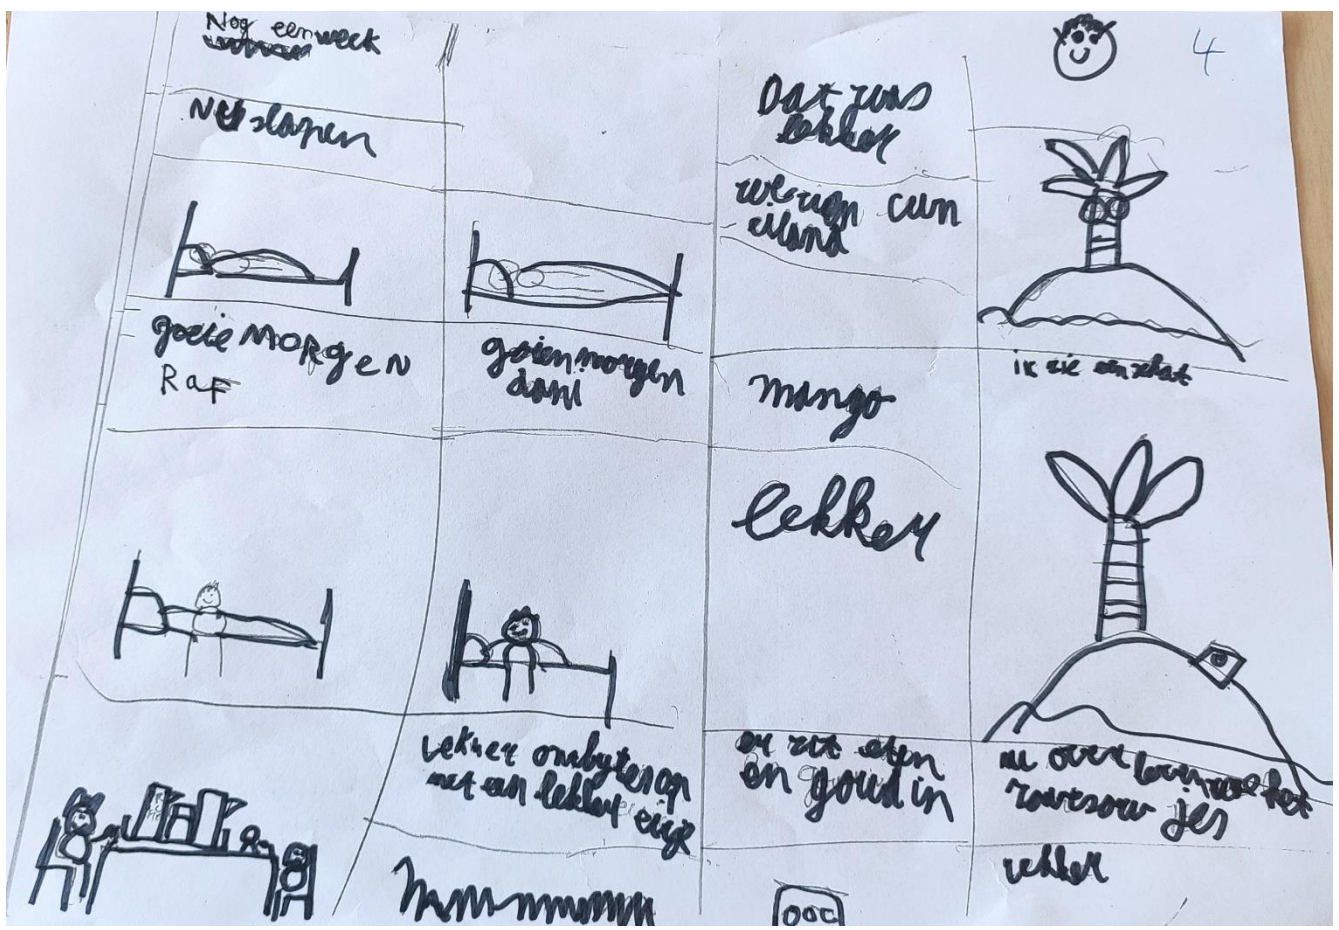 Nog een week
Nu slapen
goeie MORgeN
RaF
goienmorgen
dani
lekker ontbyten op
met een lekker eitje
hmmmmmmmm
Dat was
lekker
we zign aan
eiland
mango
lekker
er zit eten
en goud in
4
ik zie een schat
nu over leven we het
jes
lekker